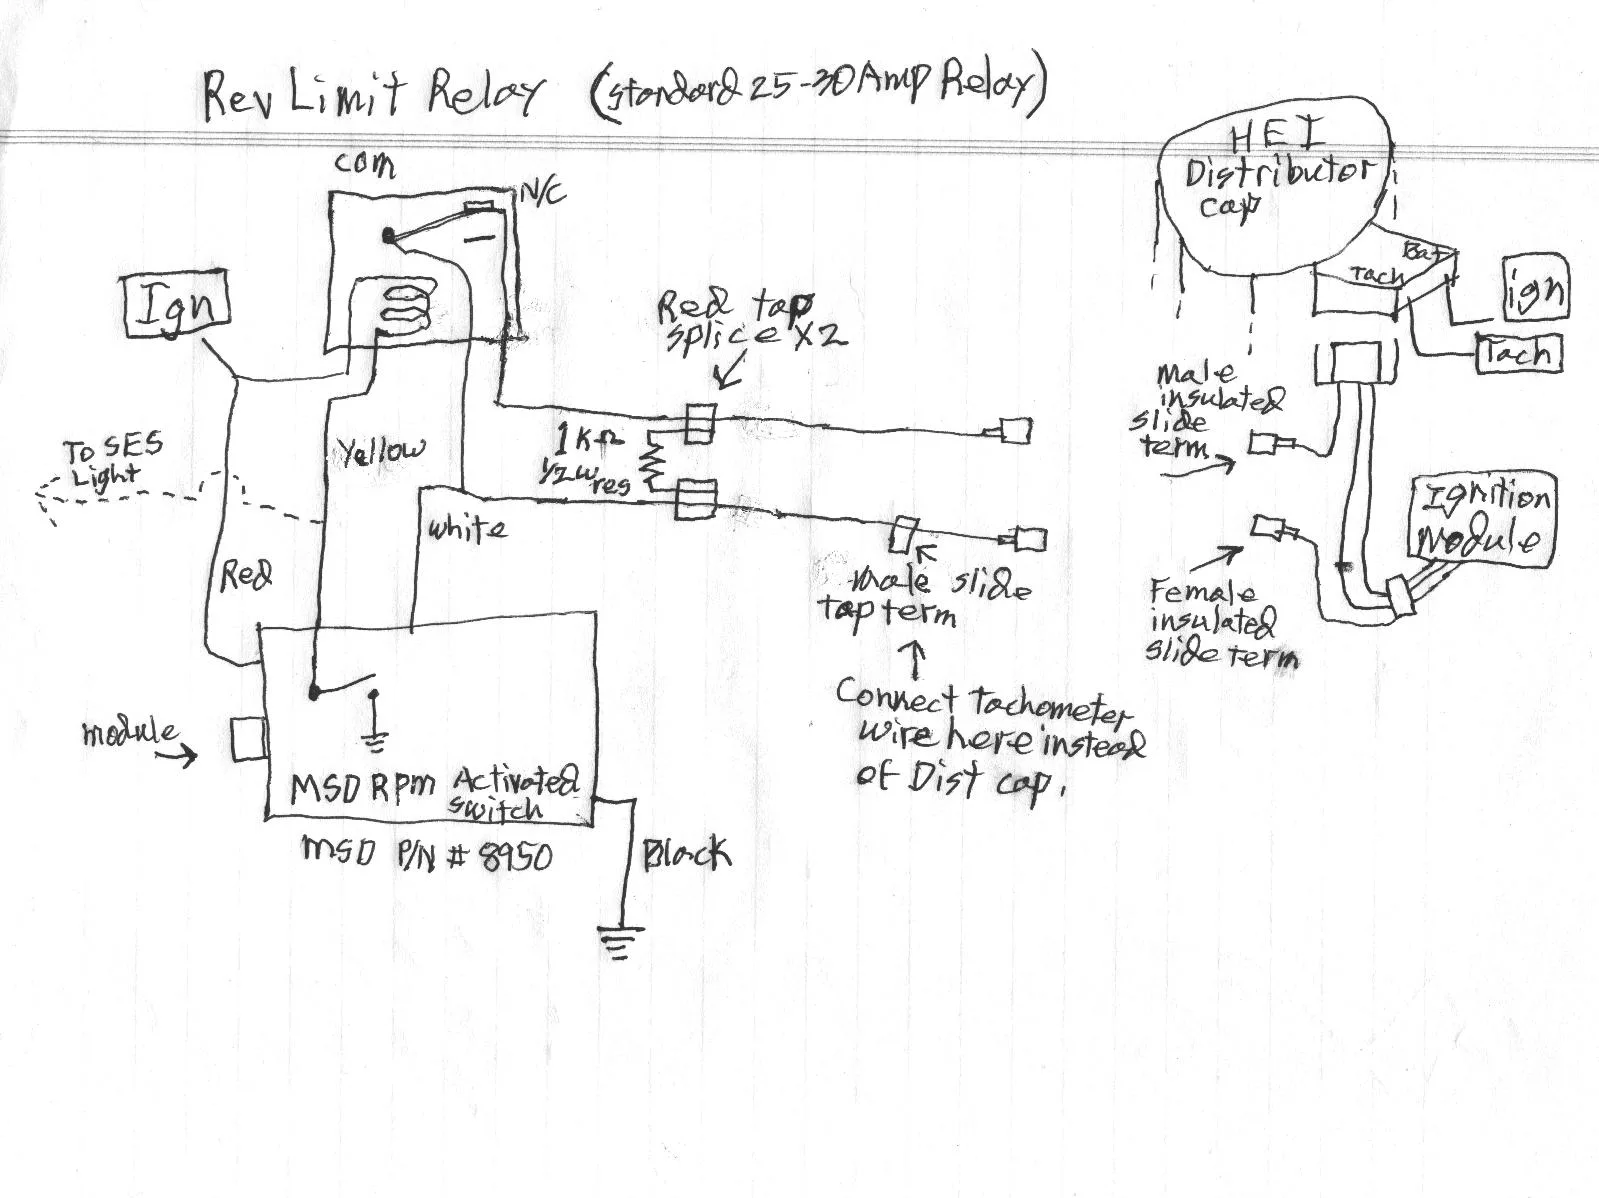 Rev Limit Relay (standard 25-30 Amp Relay)
com
N/C
Ign
Red tap
splice x2
1K Ω
1/2 w
res
To SES
Light
Yellow
white
Red
male slide
tap term
Connect Tachometer
wire here instead
of Dist cap.
module
MSD RPM Activated
switch
MSD P/N # 8950
Black
HEI
Distributor
cap
Bat
Tach
ign
Tach
Male
insulated
slide
term
Ignition
Module
Female
insulated
slide term